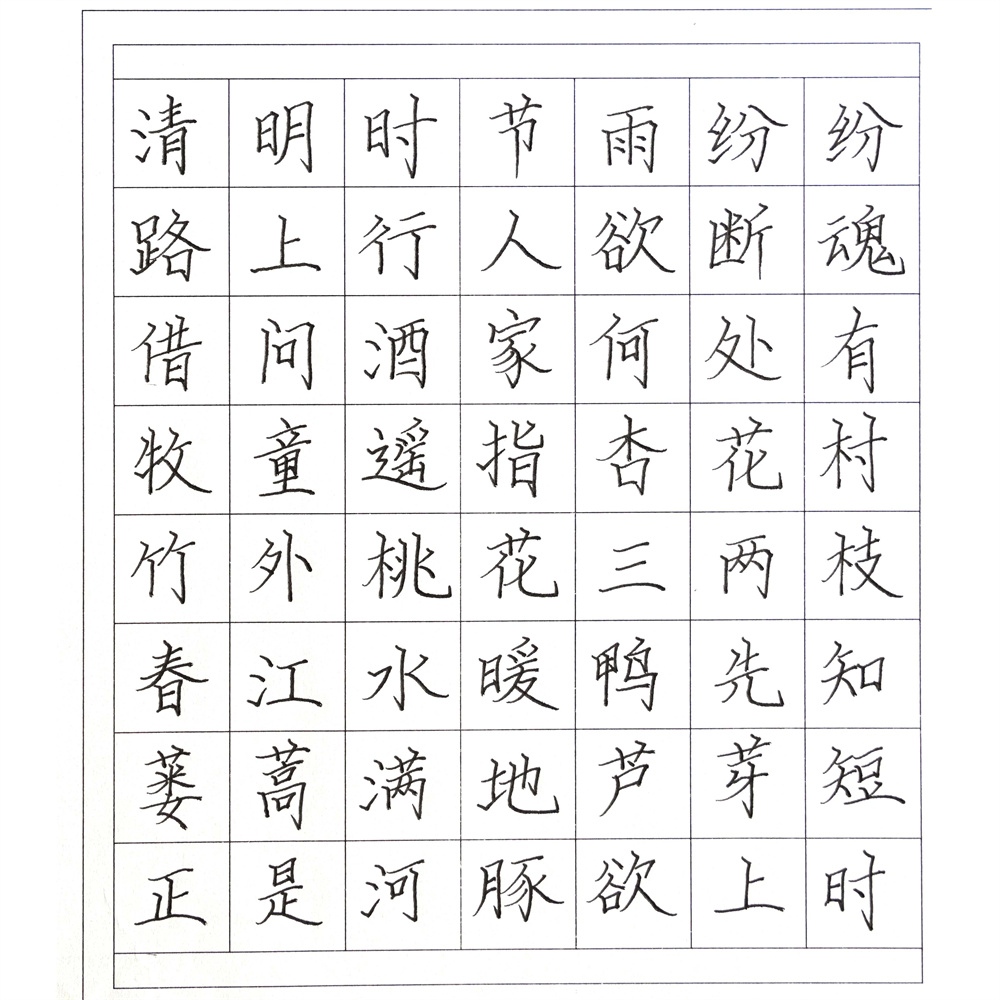 清明时节雨纷纷
路上行人欲断魂
借问酒家何处有
牧童遥指杏花村
竹外桃花三两枝
春江水暖鸭先知
蒌蒿满地芦芽短
正是河豚欲上时